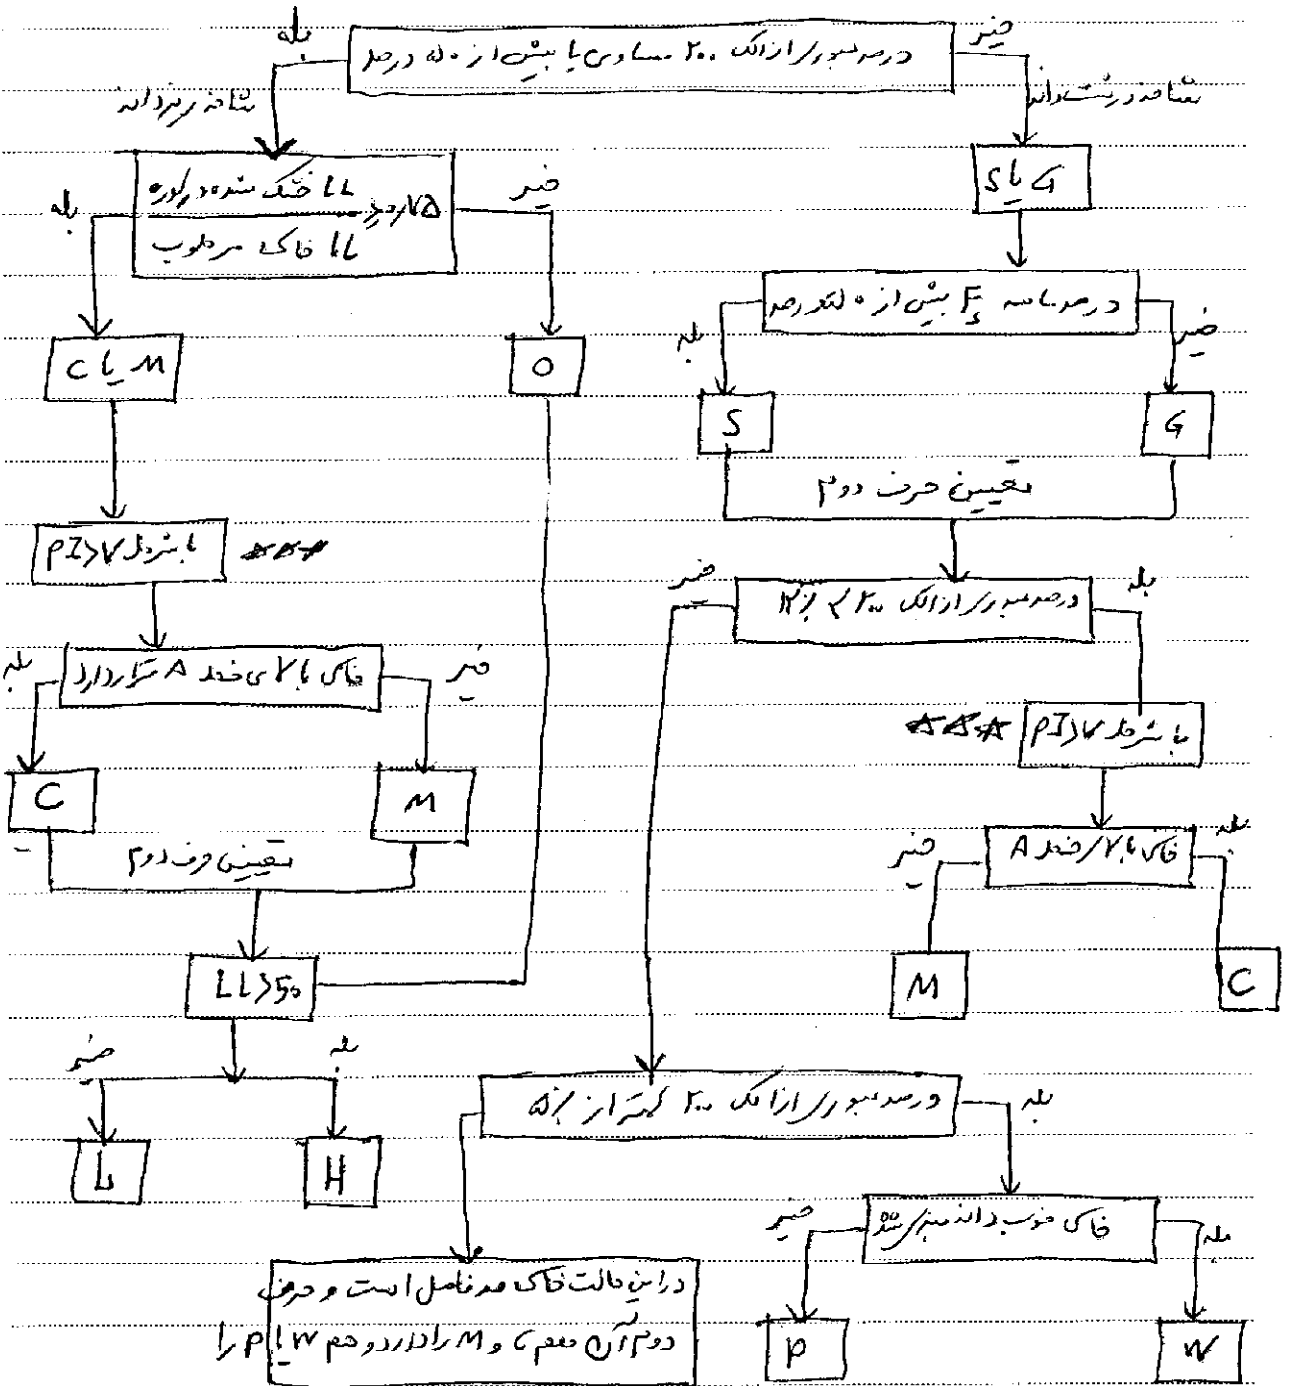 درصد عبوری از الک ۲۰۰ مساوی یا بیش از ۵۰ درصد
بله
خیر
خاک ریزدانه
خاک درشت دانه
G یا S
LL خشک شده در کوره
LL خاک مرطوب
۰٫۷۵
بله
خیر
درصد ماسه F بیش از ۵۰ درصد
بله
خیر
M یا C
O
S
G
تعیین حرف دوم
با شرط PI>۷
***
درصد عبوری از الک ۲۰۰ > ۱۲٪
خیر
بله
خاک بالای خط A قرار دارد
بله
خیر
*** با شرط PI>۷
C
M
خاک بالای خط A
خیر
بله
تعیین حرف دوم
LL>50
M
C
خیر
بله
درصد عبوری از الک ۲۰۰ کمتر از ۵٪
بله
L
H
خاک خوب دانه بندی شده
خیر
بله
در این حالت خاک حد فاصل است و حرف
دوم آن هم C و M را دارد و هم W یا P را
P
W